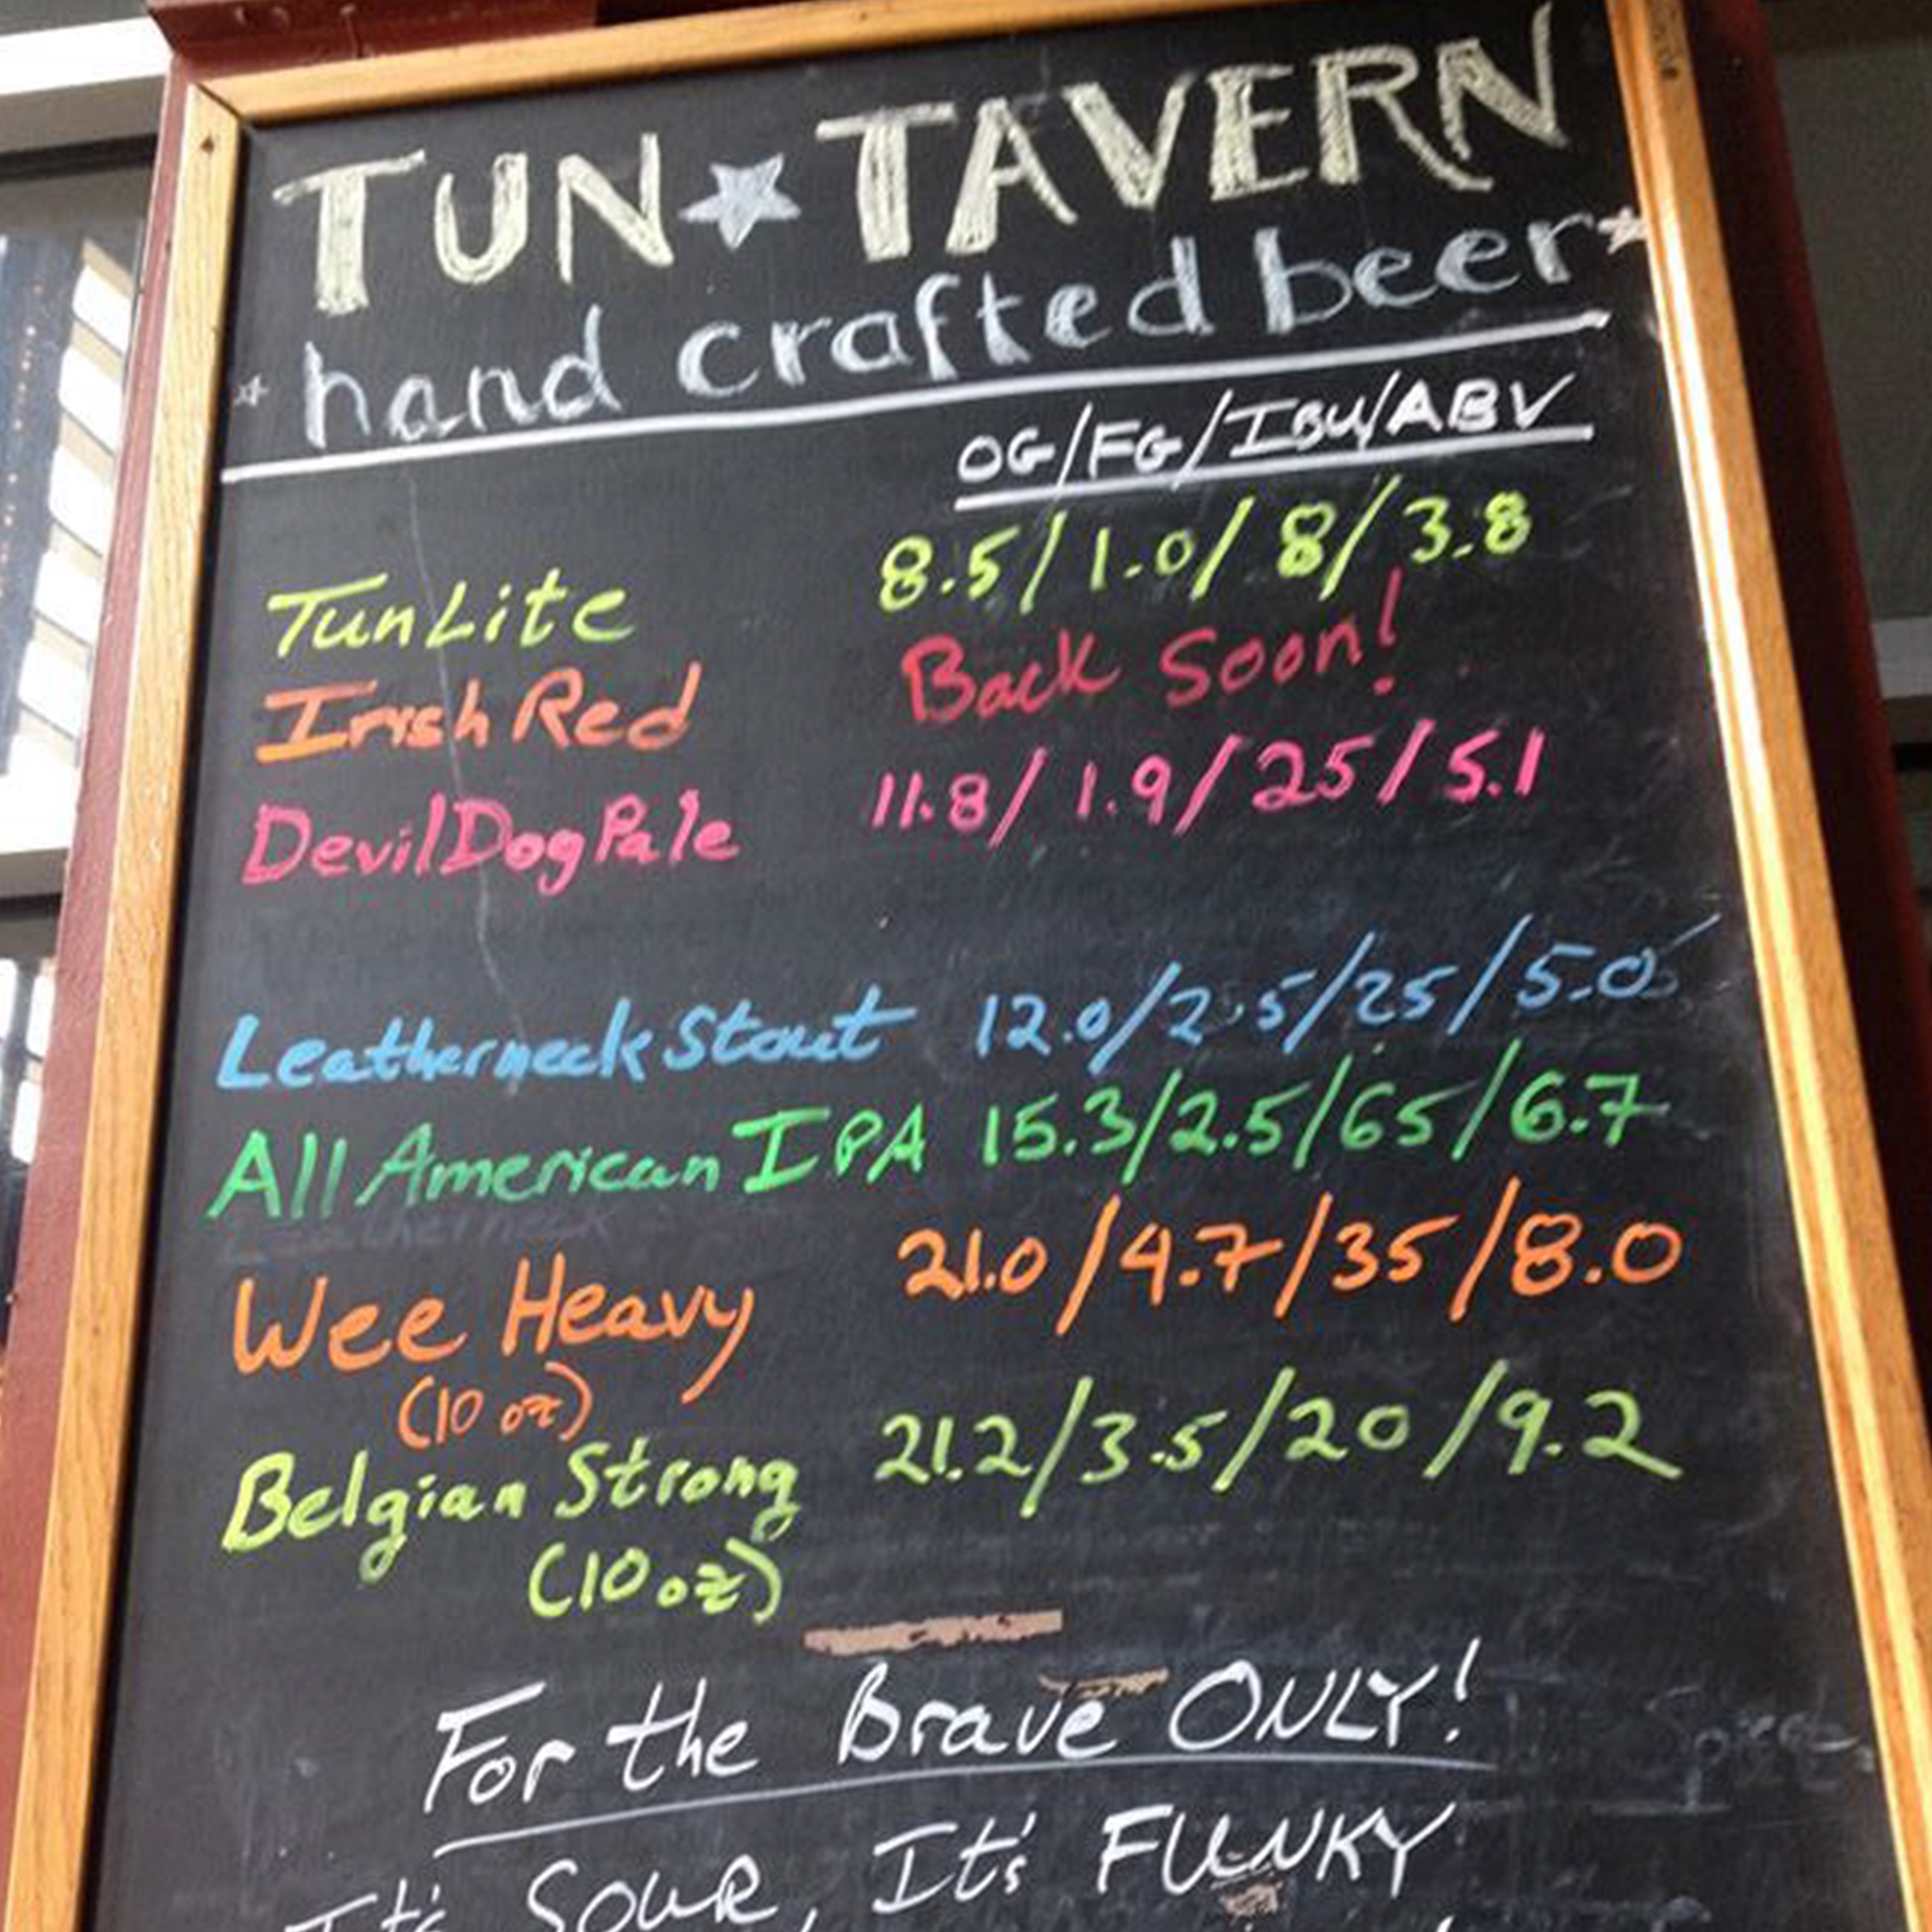 TUN TAVERN
hand crafted beer
OG/FG/IBU/ABV
Tun Lite 8.5/1.0/8/3.8
Irish Red Back Soon!
Devil Dog Pale 11.8/1.9/25/5.1
Leatherneck Stout 12.0/2.5/25/5.0
All American IPA 15.3/2.5/65/6.7
Wee Heavy 21.0/4.7/35/8.0
(10 oz)
Belgian Strong 21.2/3.5/20/9.2
(10 oz)
For the Brave ONLY!
It's SOUR, It's FUNKY